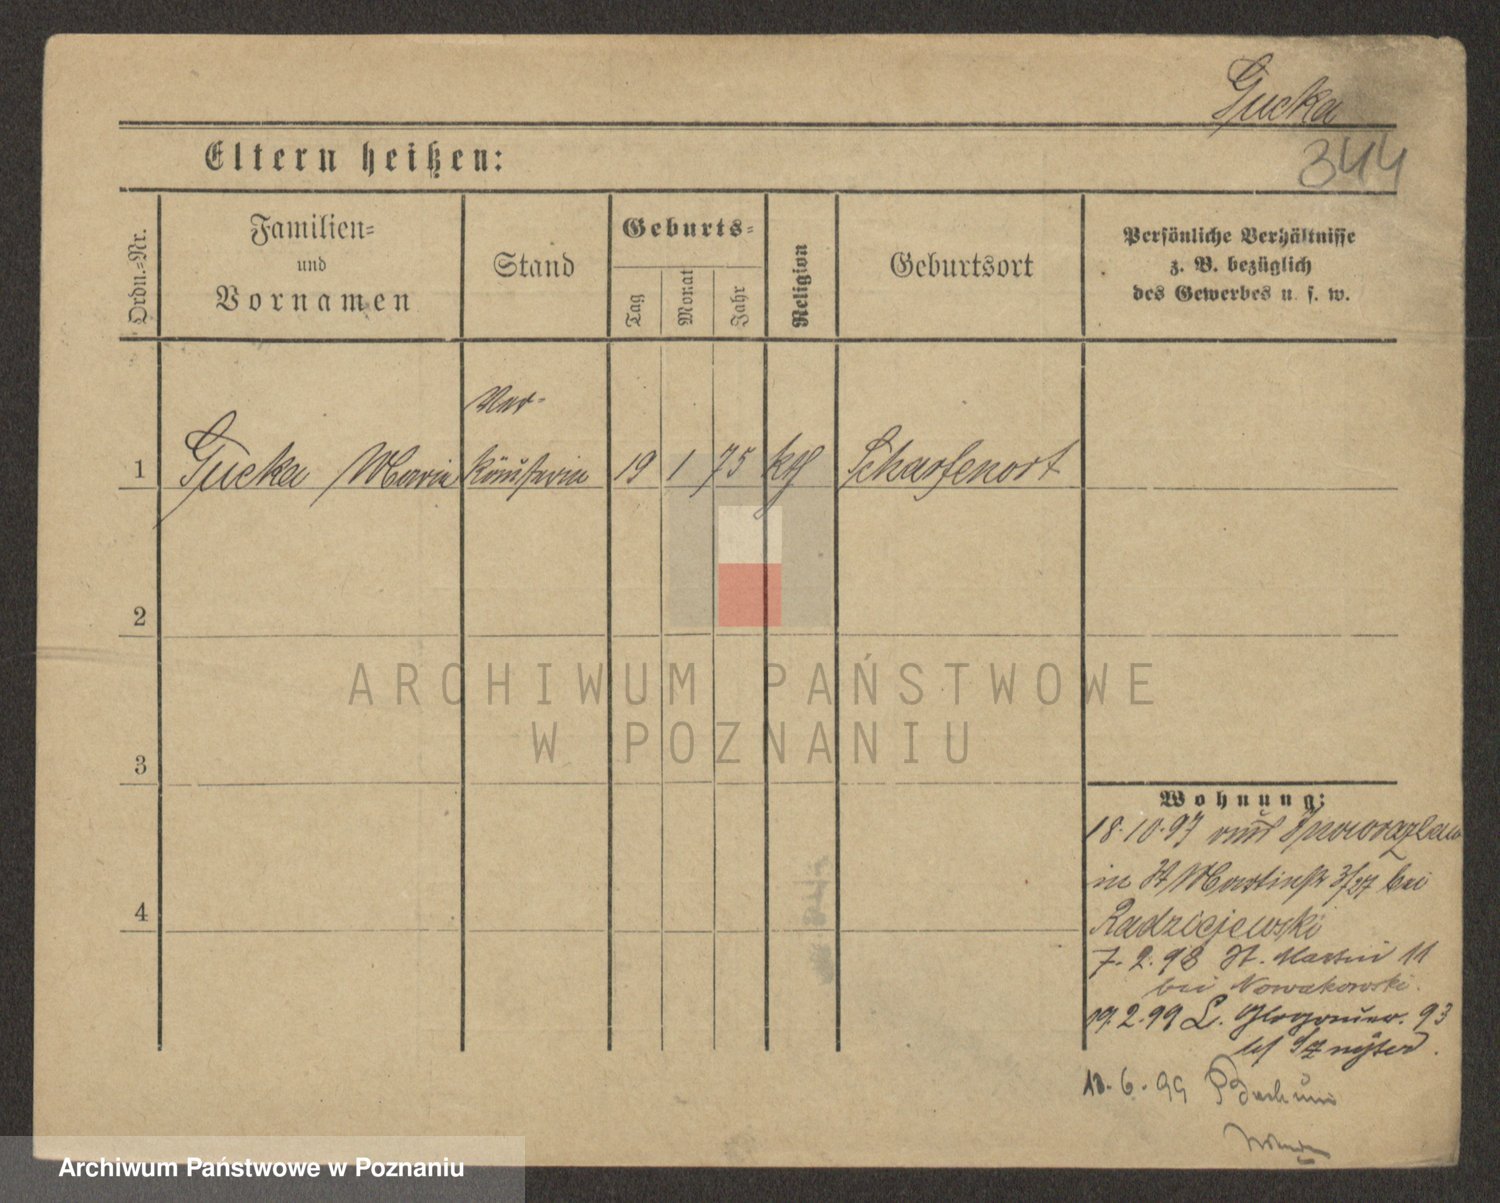 Gucka
344
Eltern heißen:
Ordn.-Nr.
Familien=
und
Vornamen
Stand
Geburts=
Tag
Monat
Jahr
Religion
Geburtsort
Persönliche Verhältnisse
z. B. bezüglich
des Gewerbes u. s. w.
Ver-
1 Gucka Maria käuferin 19 1 75 kth Scharfenort
2
3
4
Wohnung:
18.10.97 aus Inowrazlaw
in St Martinstr 3/27 bei
Radziejewski
7.2.98 St. Martin 11
bei Nowakowski.
19.2.99 L. Glogauer. 93
bei
13.6.99 Bochum
ARCHIWUM PAŃSTWOWE
W POZNANIU
Archiwum Państwowe w Poznaniu